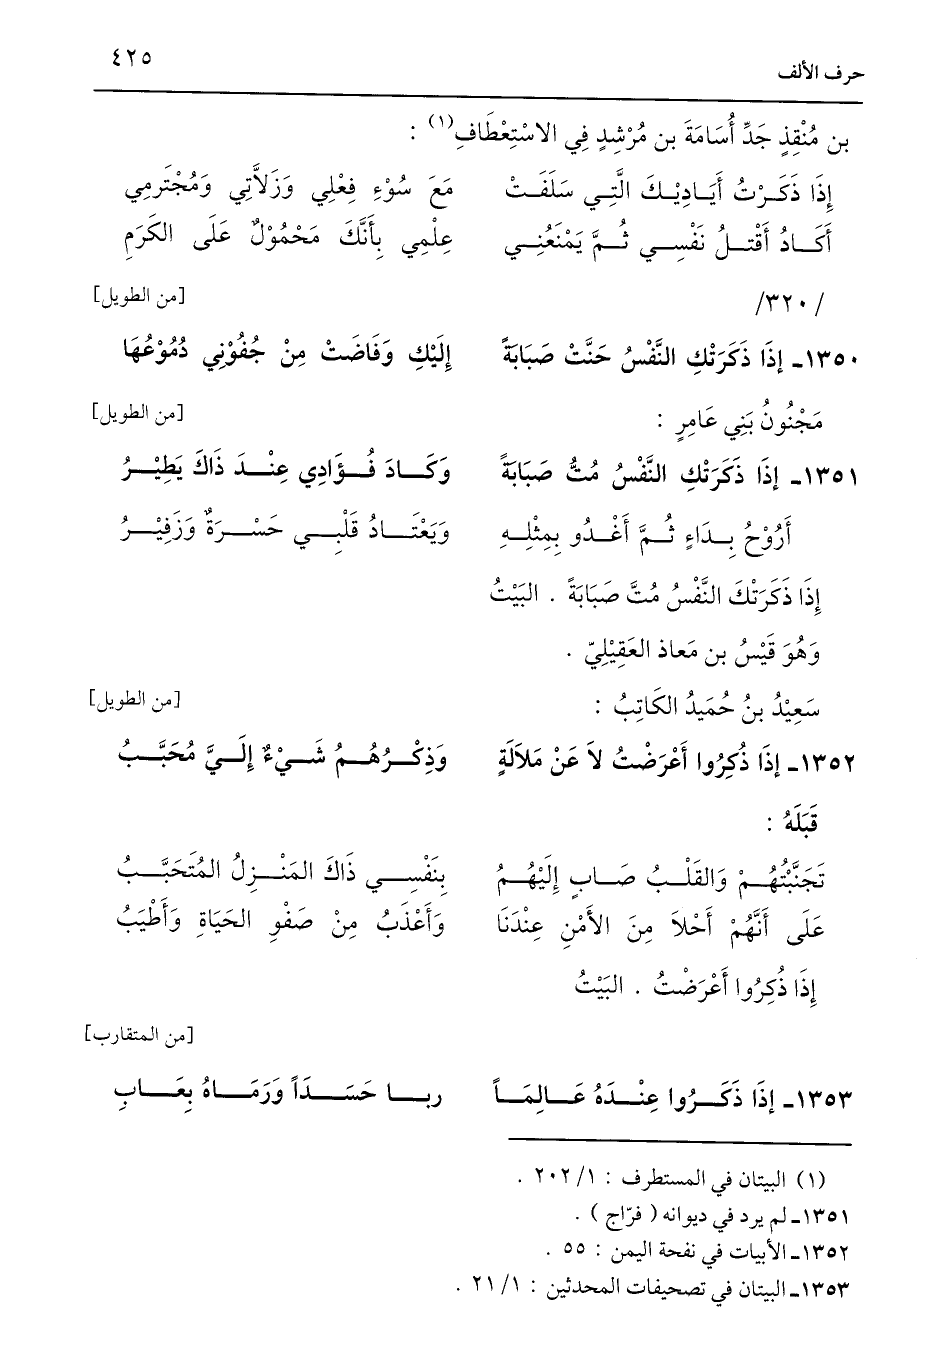 ٤٢٥
حرف الألف
بن مُنْقِذٍ جَدِّ أُسَامَةَ بن مُرْشِدٍ فِي الاسْتِعْطَافِ(١) :
إِذَا ذَكَرْتُ أَيَادِيكَ الَّتِي سَلَفَتْ مَعَ سُوْءِ فِعْلِي وَزَلاَّتِي وَمُجْتَرمِي
أَكَادُ أَقْتلُ نَفْسِي ثُمَّ يَمْنَعُنِي عِلْمِي بِأَنَّكَ مَحْمُوْلٌ عَلَى الكَرَمِ
/٣٢٠/ [من الطويل]
١٣٥٠ـ إِذَا ذَكَرَتْكِ النَّفْسُ حَنَّتْ صَبَابَةً إِلَيْكِ وَفَاضَتْ مِنْ جُفُوْنِي دُمُوْعُهَا
مَجْنُونُ بَنِي عَامِرٍ : [من الطويل]
١٣٥١ـ إِذَا ذَكَرَتْكِ النَّفْسُ مُتُّ صَبَابَةً وَكَادَ فُؤَادِي عِنْدَ ذَاكَ يَطِيْرُ
أَرُوْحُ بِدَاءٍ ثُمَّ أَغْدُو بِمِثْلِهِ وَيَعْتَادُ قَلْبِي حَسْرَةٌ وَزَفِيْرُ
إِذَا ذَكَرَتْكَ النَّفْسُ مُتَّ صَبَابَةً . البَيْتُ
وَهُوَ قَيْسُ بن مَعاذ العَقِيْلِيّ .
سَعِيْدُ بنُ حُمَيدُ الكَاتِبُ : [من الطويل]
١٣٥٢ـ إِذَا ذُكِرُوا أَعْرَضْتُ لاَ عَنْ مَلاَلَةٍ وَذِكْرُهُمُ شَيْءٌ إِلَيَّ مُحَبَّبُ
قَبَلَهُ :
تَجَنَّبْتُهُمْ وَالقَلْبُ صَابٍ إِلَيْهُمُ بِنَفْسِي ذَاكَ المَنْزِلُ المُتَحَبَّبُ
عَلَى أَنَّهُمْ أَحْلاَ مِنَ الأَمْنِ عِنْدَنَا وَأَعْذَبُ مِنْ صَفْوِ الحَيَاةِ وَأَطْيَبُ
إِذَا ذُكِرُوا أَعْرَضْتُ . البَيْتُ
[من المتقارب]
١٣٥٣ـ إِذَا ذَكَرُوا عِنْدَهُ عَالِمَاً ربا حَسَداً وَرَمَاهُ بِعَابِ
(١) البيتان في المستطرف : ٢٠٢/١ .
١٣٥١ـ لم يرد في ديوانه ( فرّاج ) .
١٣٥٢ـ الأبيات في نفحة اليمن : ٥٥ .
١٣٥٣ـ البيتان في تصحيفات المحدثين : ٢١/١ .